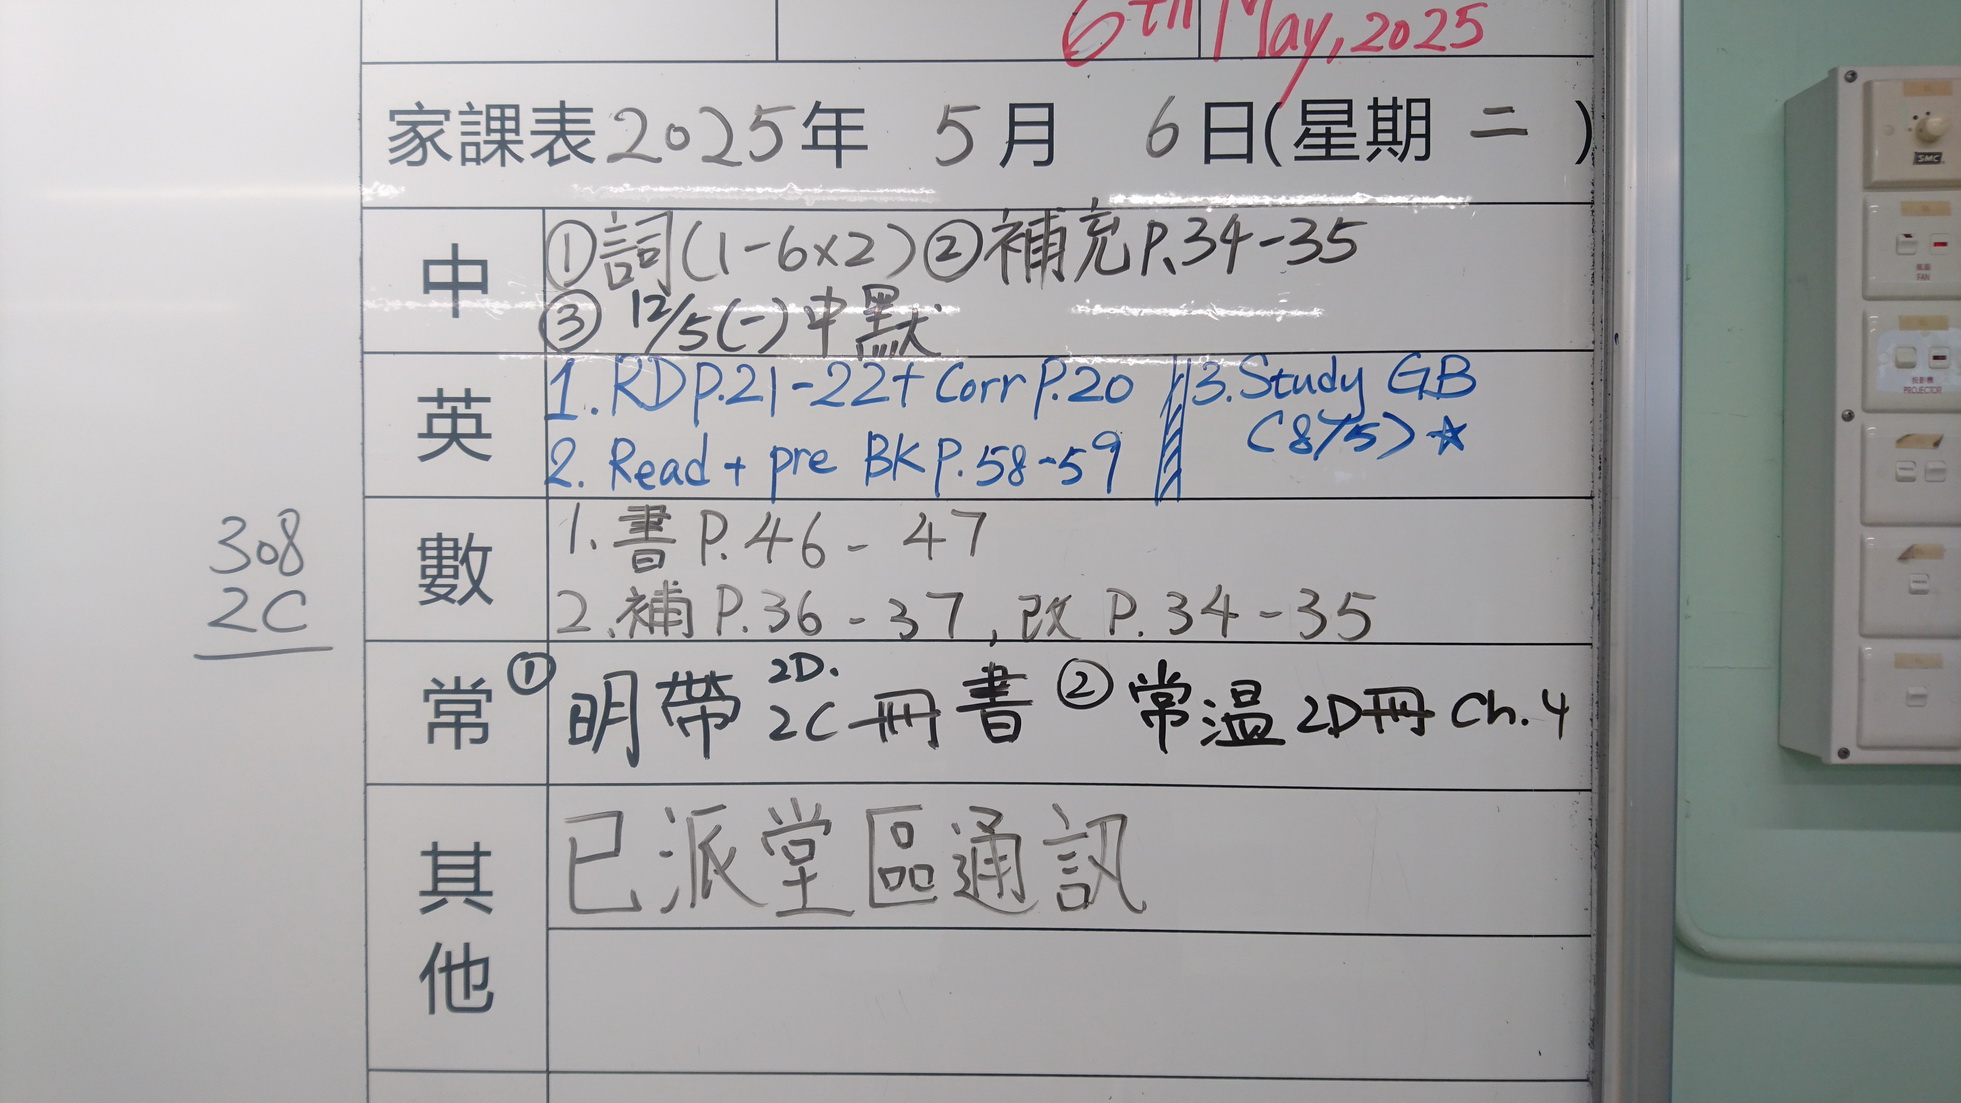 6th May, 2025
家課表2025年 5月 6日(星期 二 )
中
①詞(1-6×2)②補充P.34-35
③ 12/5(一)中默
英
1. RD P.21-22+ Corr P.20
2. Read + pre BK P.58-59
3. Study GB
(8/5)☆
數
1. 書 P.46 - 47
2. 補 P.36 - 37, 改 P. 34-35
308
2C
常
① 明帶 2D. 2C 冊書 ② 常溫 2D冊 Ch.4
其他
已派堂區通訊
SMC
風扇
FAN
投影機
PROJECTOR